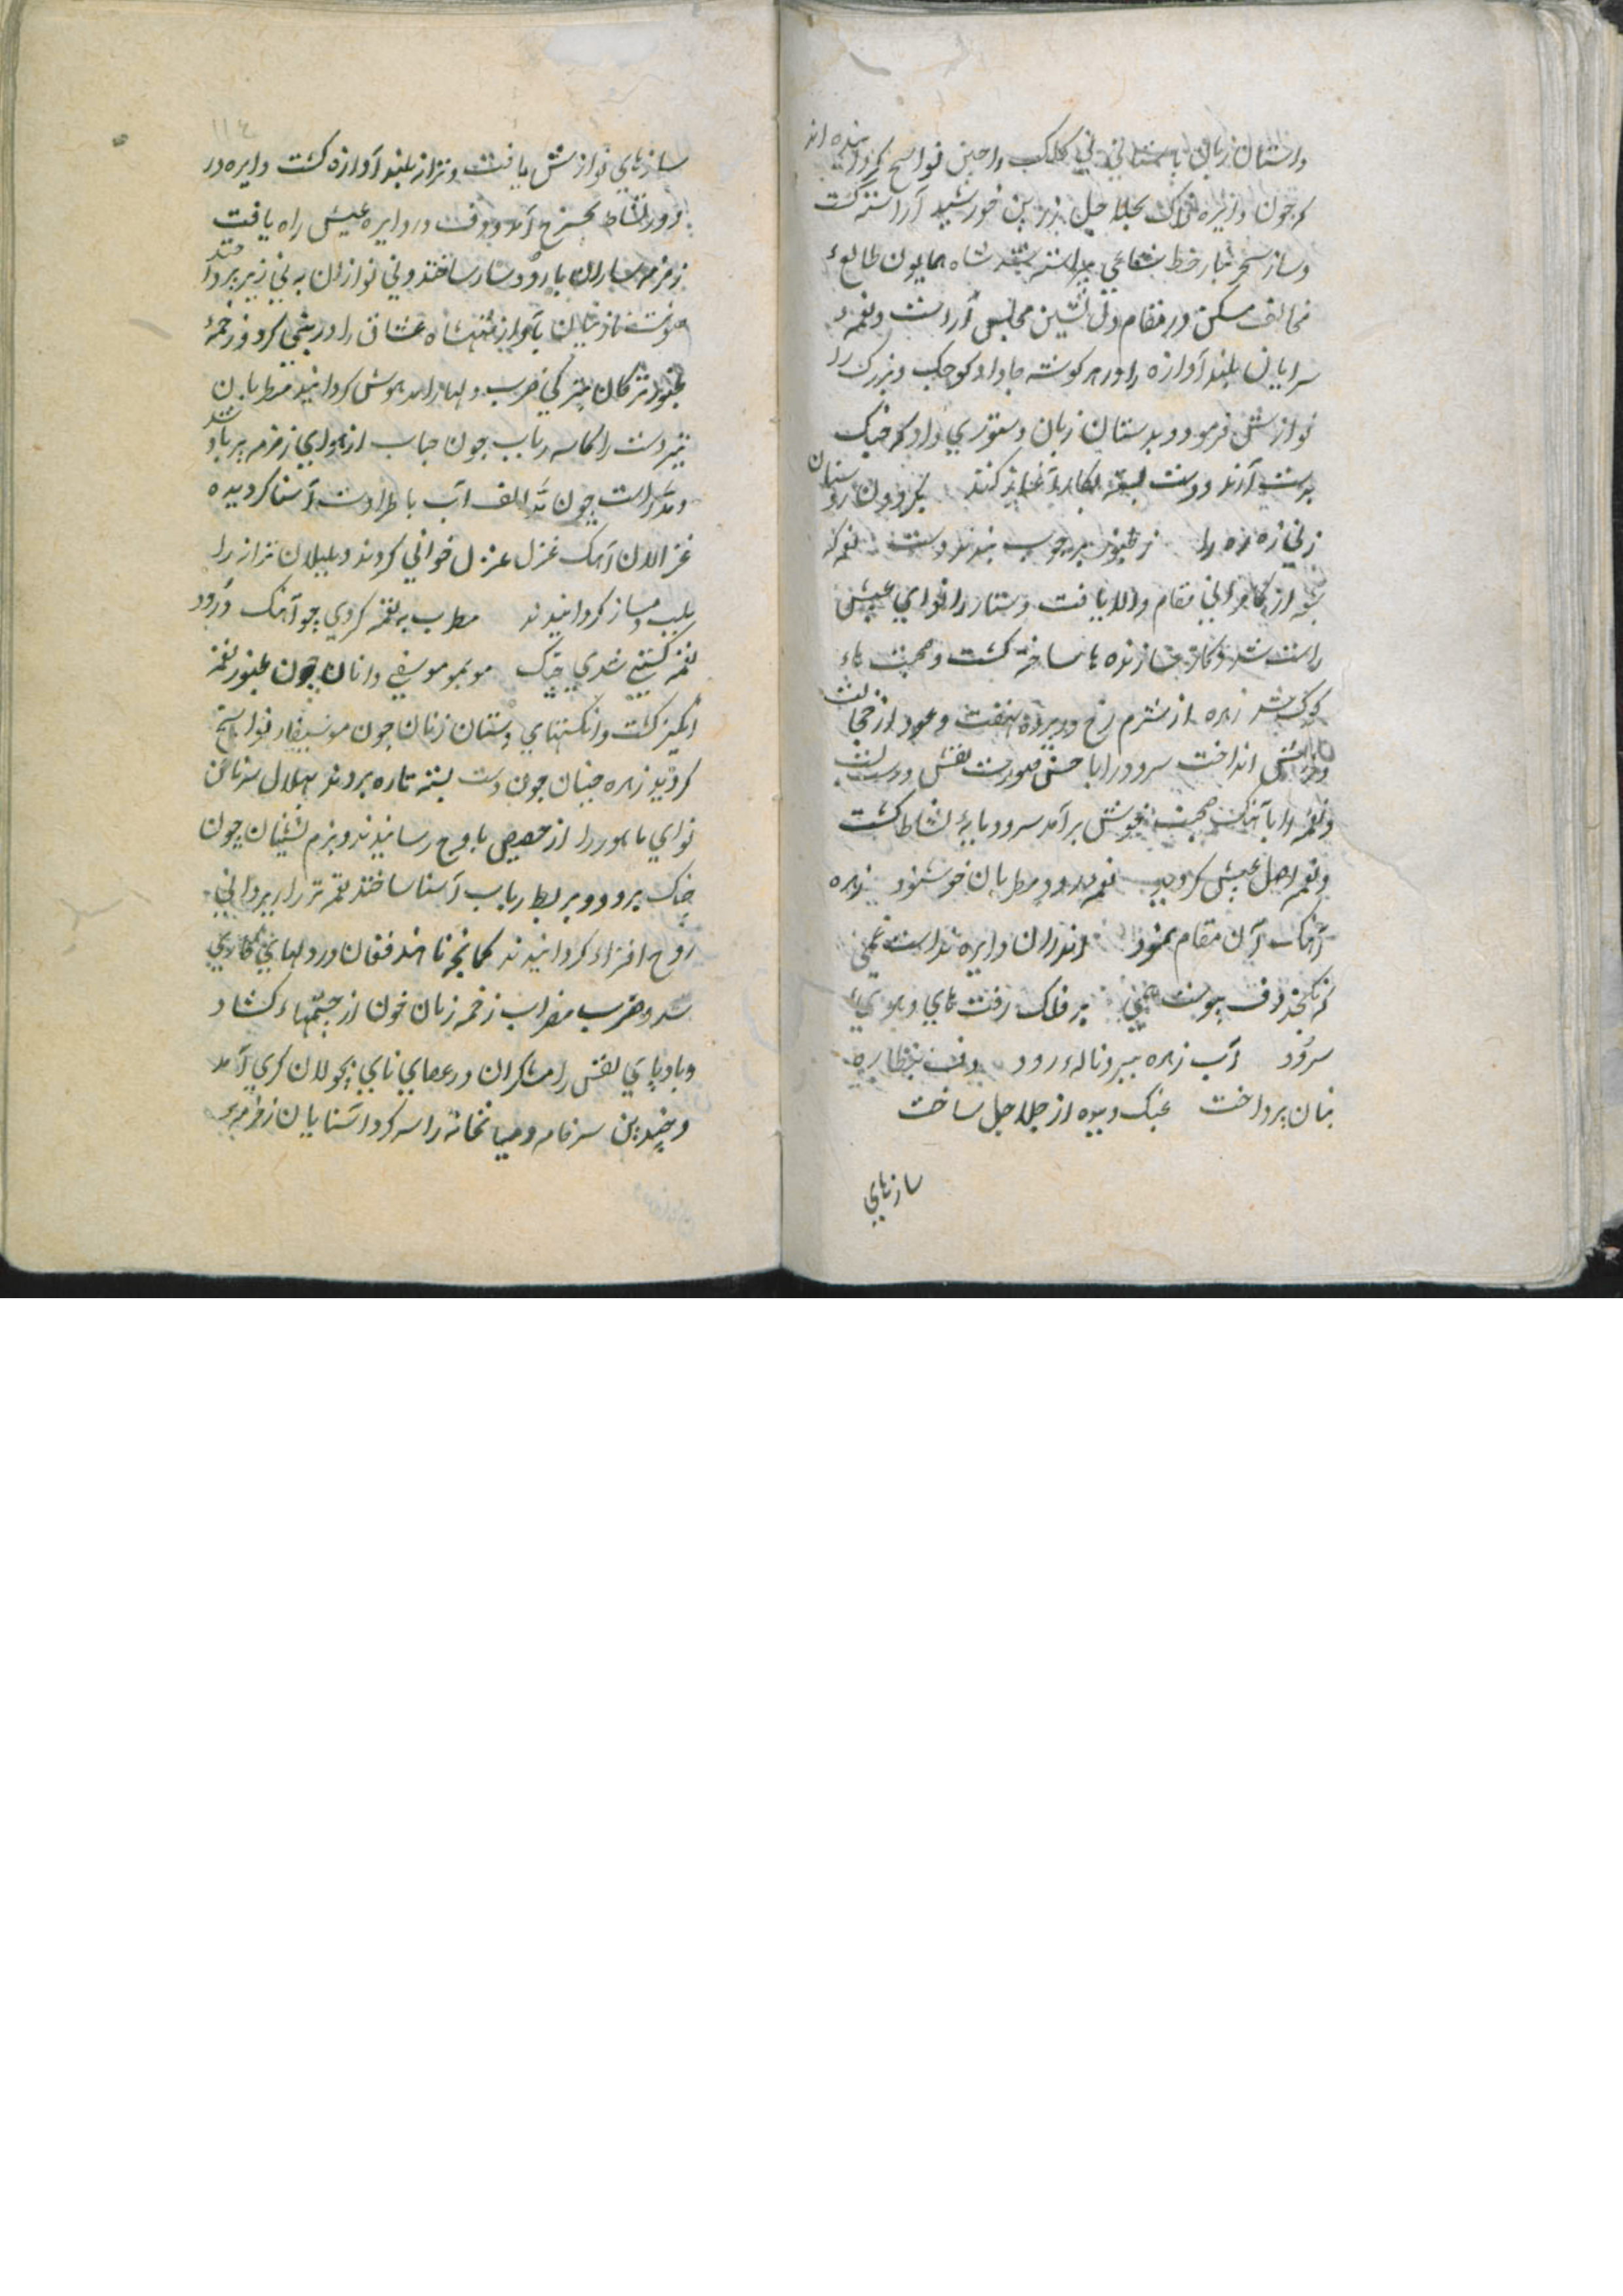 داستان زبان باستانی نی کلک را چنین نواسنج کردانیده اند
که چون دایره فلاک بجلاجل زرین خورشید آراسته کشت
و ساز سحر بتار خط شعاعی پیراسته شد شاه همایون طالع
مخالف مسکن در مقام دل نشین مجلسی آراست و نغمه
سرایان بلند آوازه را در هر کوشه جا داد کوچک و بزرک را
نوازش فرمود و بدستان زبان دستوری داد که چنک
بدست آرند و دست بسته بکار آغاز کنند
زنی زه زه را ز طنبور بر چوب بندند دست نغمه که
نی از کامرانی مقام والا یافت و ستار را نوای عیش
راست شد و کار سازنده ها ساخته کشت و صحبت ها
کوک شد زهره از شرم رخ در پرده نهفت و عود از خجالت
در آتش انداخت سرود را با حسن صورت نقش درست نشست
و نغمه را با آهنک صحبت خوش برآمد سرود پایه نشاط کشت
و نغمه اصل عیش کردید نغمه سرود مطربان خوشنود زهره
آهنک آن مقام نمود اندران دایره نداشت غمی
که نکنجد دف بپوست همی بر فلک رفت های و هوی
سرود آب زهره ببرد ناله رود دف بنظاره
بتان پرداخت عینک دیده از جلاجل ساخت
سازهای
۱۱۴
سازهای نوازش یافت و تراز بلند آوازه کشت دایره در
دور نشاط بچرخ آمد و دف در دایره عیش راه یافت
زمزمه سازان با رود ساز ساختند و نی نوازان به نی زیر پرداختند
صوت نازنینان بآواز شهناز عشاق را در پی کرد و زخمه
طنبور ترکان بترکی ضرب دلها را مدهوش کردانید مطربان
تیز دست را کاسه رباب چون حباب از هوای زمزمه پر باد شد
و مد راست چون مد الف آب با طراوت آشنا کردیده
غزالان آهنک غزل غزل خوانی کردند و بلبلان تراز را
بلب دمساز کردانیدند مطرب به نغمه کردی چو آهنک درود
نغمه کشتی شدی چنک موبمو موسیقی دانان چون طنبور نغمه
انکیز کشت و انکشتهای دستان زنان چون موسیقار نواسنج
کردید زهره جبینان چون دست بسته تاره بردند هلال سر ناخن
نوای ماهور را از حضیض باوج رسانیدند و بزم نشینان چون
چنک برود و بربط رباب آشنا ساختند نغمه تر را بروانی
روح افزا کردانیدند کمانچه ناهید فغان در دلهای کاری
شد و ضرب مضراب زخمه زنان خون از چشمها کشاد
و بادپای نفس رامشکران در عصای نای بجولان کری آمد
و چندین سرنامه و میانخانه را سر کرد آشنایان زمزمه